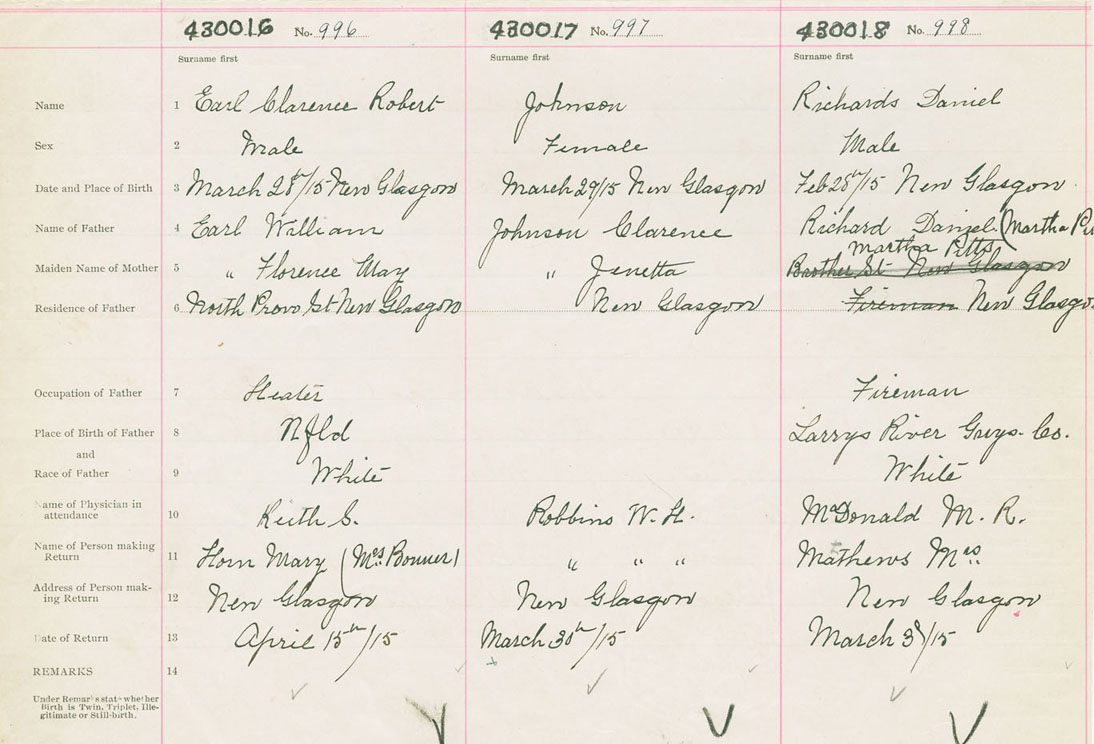 430016 No. 996 430017 No. 997 430018 No. 998
Surname first Surname first Surname first
Name 1 Earl Clarence Robert Johnson Richards Daniel
Sex 2 Male Female Male
Date and Place of Birth 3 March 28th/15 New Glasgow March 29/15 New Glasgow Feb 28th/15 New Glasgow
Name of Father 4 Earl William Johnson Clarence Richard Daniel (Martha
Martha Pitts
Maiden Name of Mother 5 " Florence May " Janetta Brother St New Glasgow
Residence of Father 6 North Provo St New Glasgow New Glasgow Fireman New Glasgo
Occupation of Father 7 Heater Fireman
Place of Birth of Father 8 Nfld Larrys River Guys. Co.
and
Race of Father 9 White White
Name of Physician in
attendance 10 Keith S. Robbins W. H. McDonald M. R.
Name of Person making
Return 11 Horn Mary (Mrs. Bonner) " " " Mathews Mrs
Address of Person mak-
ing Return 12 New Glasgow New Glasgow New Glasgow
Date of Return 13 April 15th/15 March 30th/15 March /15
REMARKS 14
Under Remarks state whether
Birth is Twin, Triplet, Ille-
gitimate or Still-birth.